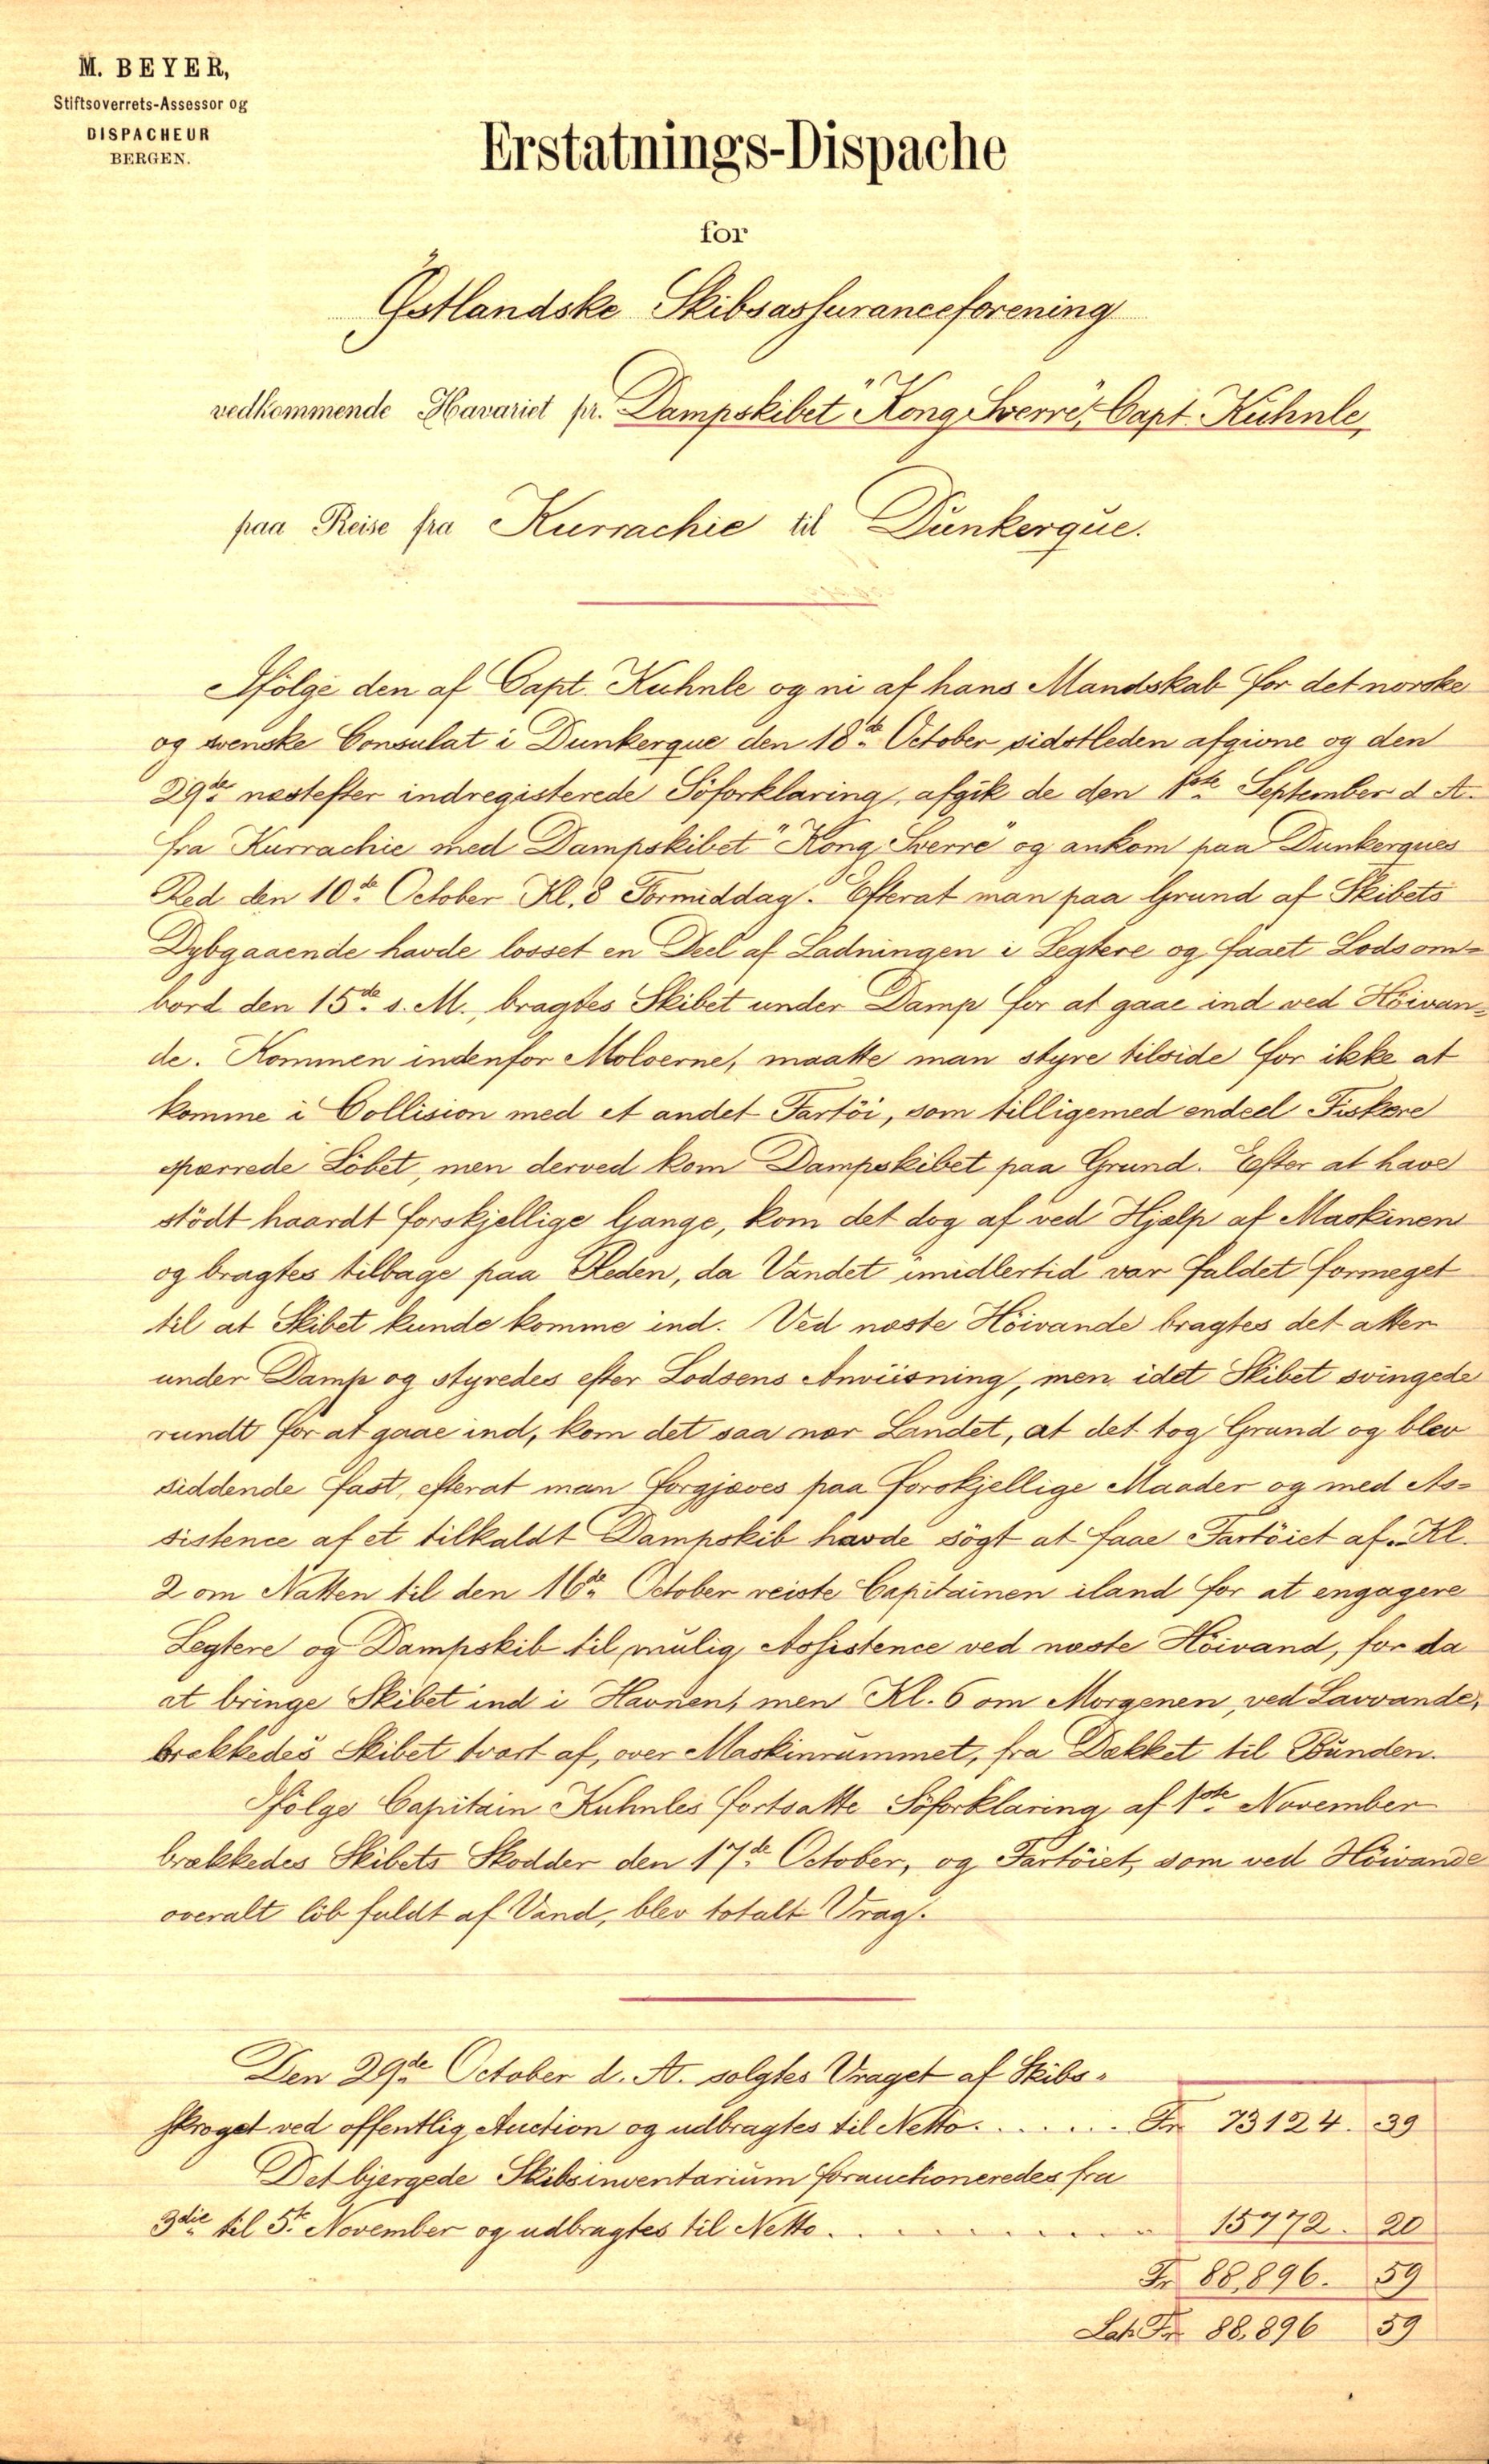 M. BEYER,
Stiftsoverrets-Assessor og
DISPACHEUR
BERGEN.
Erstatnings-Dispache
for
Östlandske Skibsassuranceforening
vedkommende Havariet pr. Dampskibet "Kong Sverre", Capt. Kühnle,
paa Reise fra Kurrachie til Dünkerque.
Ifölge den af Capt. Kuhnle og ni af hans Mandskab for det norske
og svenske Consulat i Dunkerque den 18de October sidstleden afgivne og den
29de næstefter indregisterede Söforklaring, afgik de den 1ste September d. A.
fra Kurrachie med Dampskibet "Kong Sverre" og ankom paa Dunkerques
Red den 10de October Kl. 8 Formiddag. Efterat man paa Grund af Skibets
Dybgaaende havde losset en Deel af Ladningen i Legtere og faaet Lods om-
bord den 15de s. M., bragtes Skibet under Damp for at gaae ind ved Höivan-
de. Kommen indenfor Moloerne, maatte man styre tilside for ikke at
komme i Collision med et andet Fartöi, som tilligemed endeel Fiskere
spærrede Löbet, men derved kom Dampskibet paa Grund. Efter at have
stödt haardt forskjellige Gange, kom det dog af ved Hjælp af Maskinen
og bragtes tilbage paa Reden, da Vandet imidlertid var faldet formeget
til at Skibet kunde komme ind. Ved næste Höivande bragtes det atter
under Damp og styredes efter Lodsens Anviisning, men idet Skibet svingede
rundt for at gaae ind, kom det saa nær Landet, at det tog Grund og blev
siddende fast, efterat man forgjæves paa forskjellige Maader og med As-
sistence af et tilkaldt Dampskib havde sögt at faae Fartöiet af. Kl.
2 om Natten til den 16de October reiste Capitainen iland for at engagere
Legtere og Dampskib til mulig Assistence ved næste Höivand, for da
at bringe Skibet ind i Havnen, men Kl. 6 om Morgenen, ved Lavvande,
brækkedes Skibet tvært af, over Maskinrummet, fra Dækket til Bunden.
Ifölge Capitain Kuhnles fortsatte Söforklaring af 1ste November
brækkedes Skibets Skodder den 17de October, og Fartöiet, som ved Höivande
overalt löb fuldt af Vand, blev totalt Vrag.
Den 29de October d. A. solgtes Vraget af Skibs-
skroget ved offentlig Auction og udbragtes til Netto . . . . . . Fr. 73124. 39
Det bjergede Skibsinventarium forauctioneredes fra
3die til 5te November og udbragtes til Netto . . . . . . . . . " 15772. 20
Fr 88,896. 59
Lat. Fr. 88,896 59